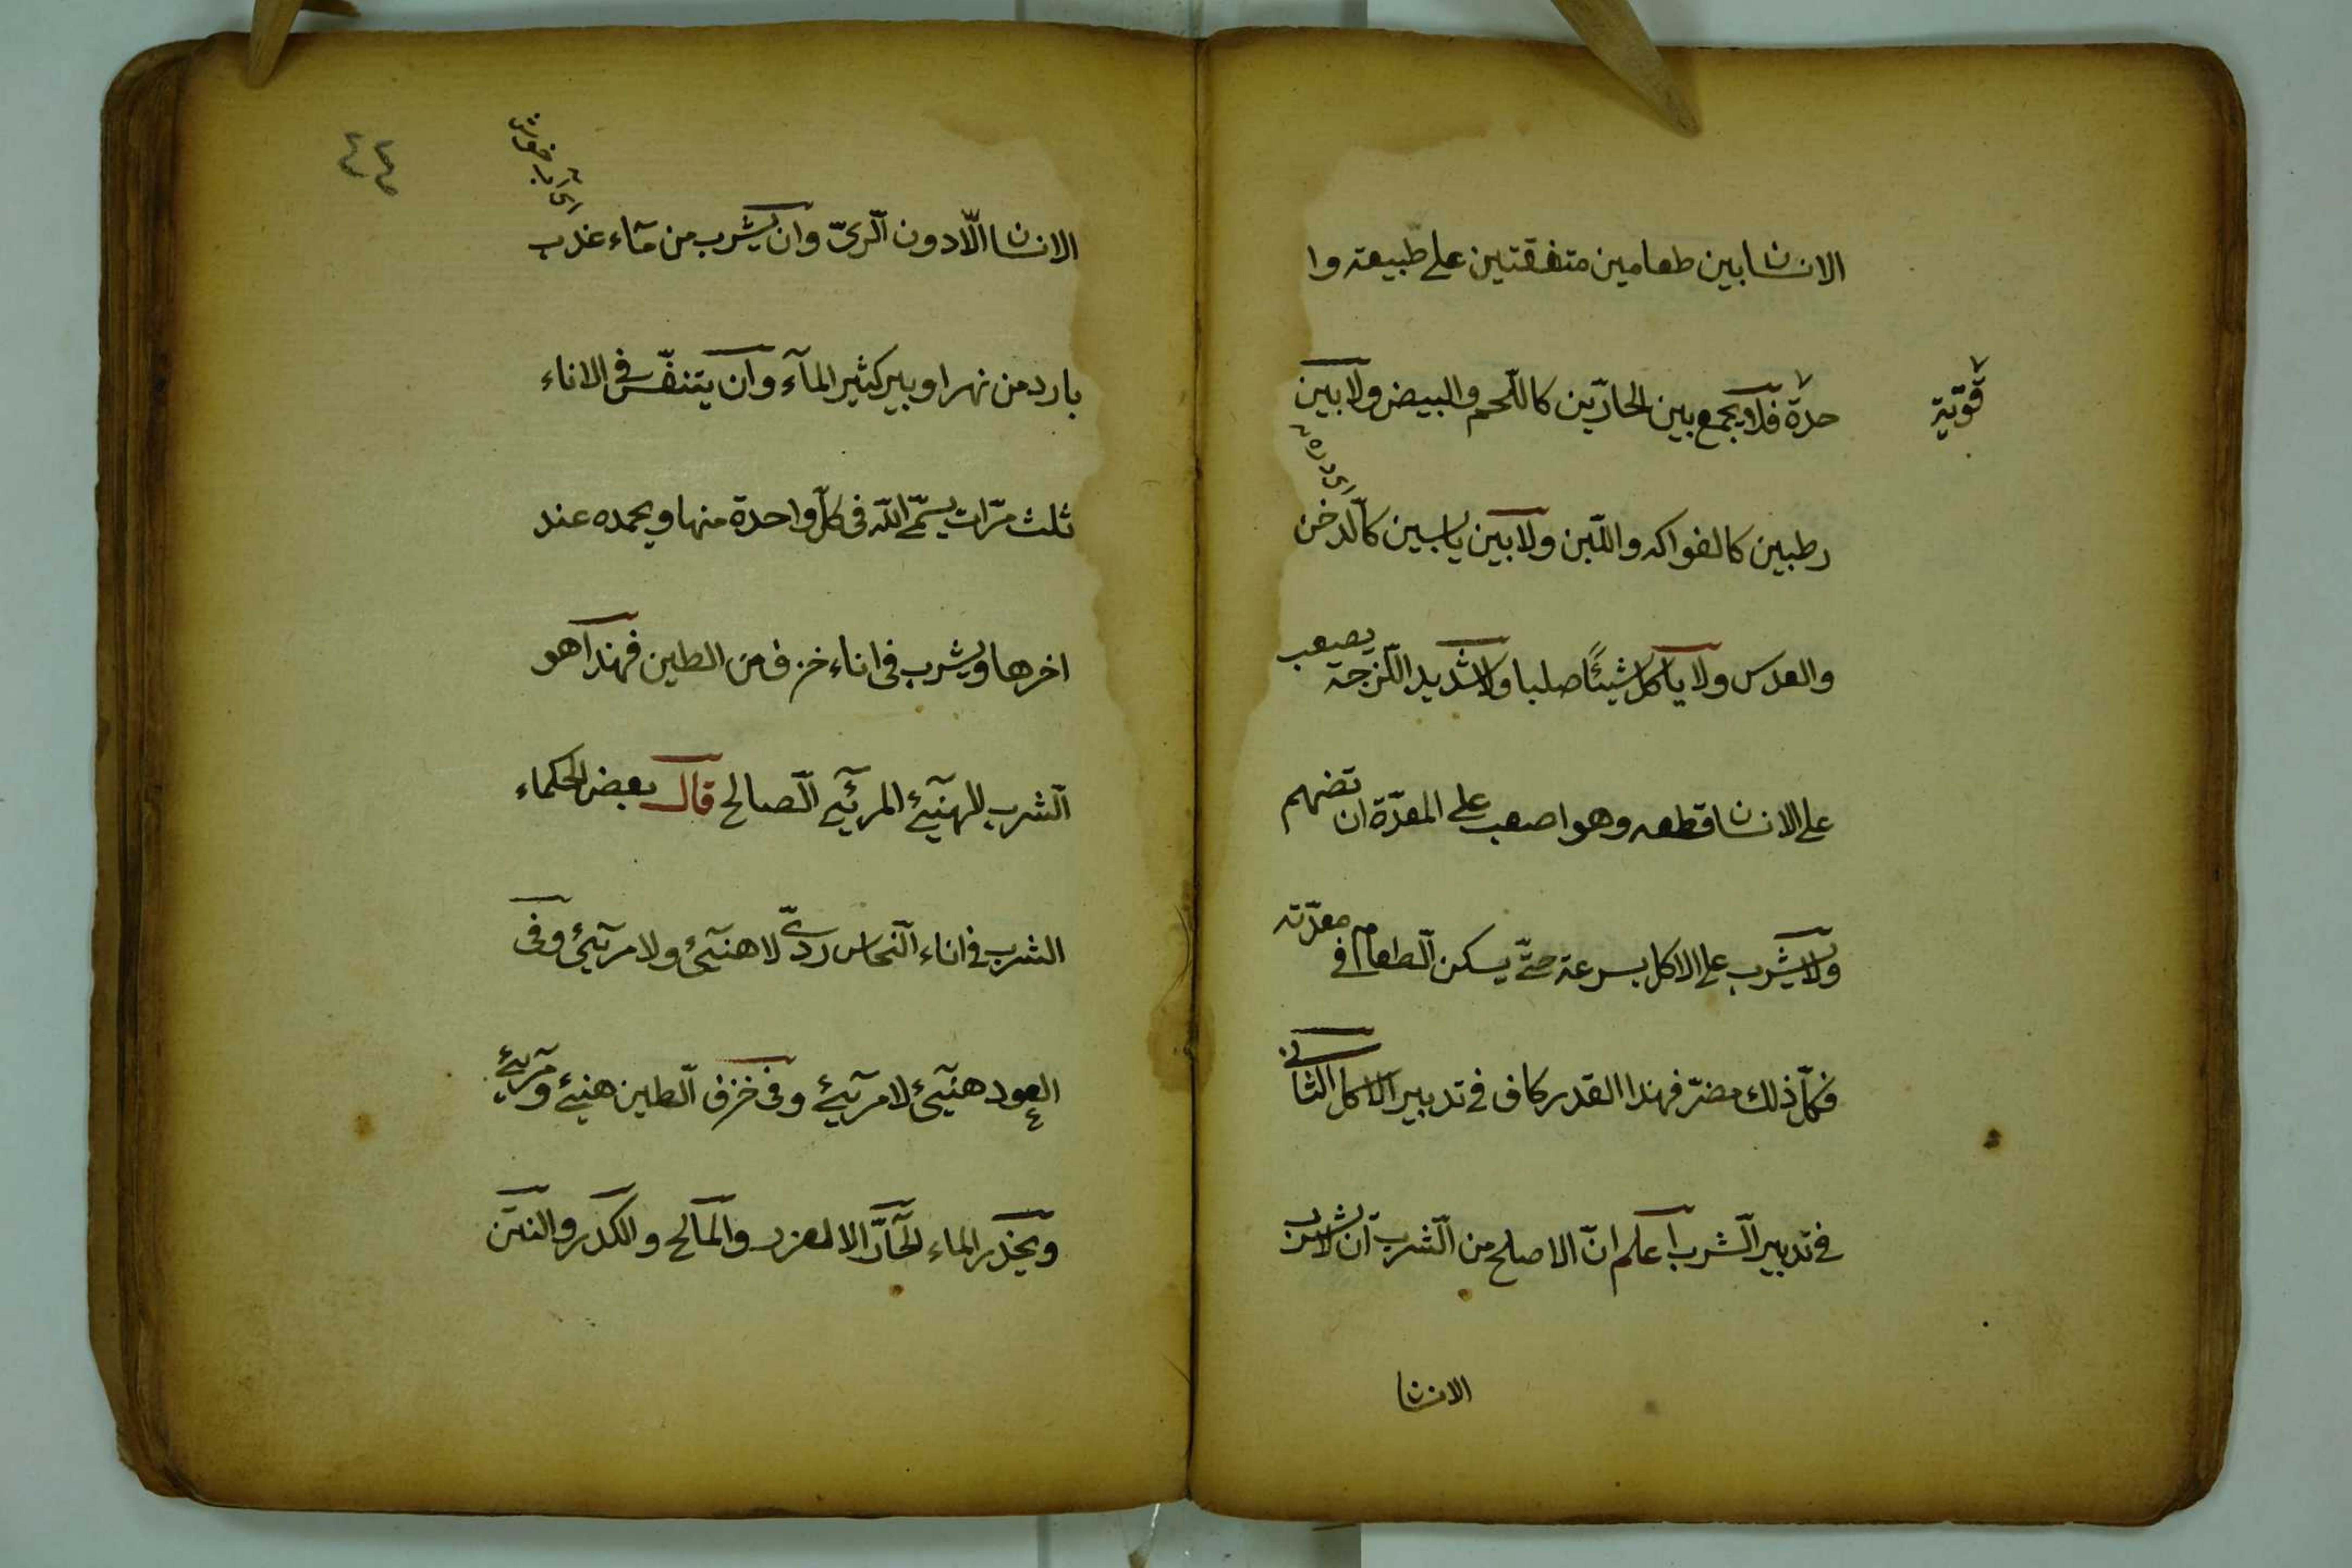 الانسان بين طعامين متفقتين على طبيعة وا
حدة قوّية فلا يجمع بين الحارّين كاللّحم والبيض ولا بين
رطبين كالفواكه واللّبن ولا بين يابسين كالّدخن
والعدس ولا ياكل شيئًا صلبا ولا شديد اللّزجة يصعب
على الانسان قطعه وهو اصعب على المعدّة ان تضهم
ولا يشرب على الاكل بسرعة حتّى يسكن الّطعام في معدّته
فكلّ ذلك مضرّ فهذا القدر كاف في تدبير الاكل الثانى
في تدبير الّشرب اعلم انّ الاصلح من الّشرب ان لا يشرب
الانسان
٤٤
الانسان الّا دون الّرىّ وان يشرب من مآء عذب
بارد من نهر او بير كثير المآء وان يتنفّس في الاناء
ثلث مرّات يسمّى اللّه فى كلّ واحدة منها ويحمده عند
اخرها ويشرب فى اناء خزف من الطين فهذا هو
الّشرب الهنيّئ المريّئ الّصالح قال بعض الحكماء
الشرب في اناء الّنحاس ردىّ لا هنيّئ ولا مريّئ وفى
العود هنيّئ لا مريّئ وفى خزف الّطين هنيئ ومريّئ
ويحذر الماء الحآرّ الا لعزر والمالح والكدر والنتن